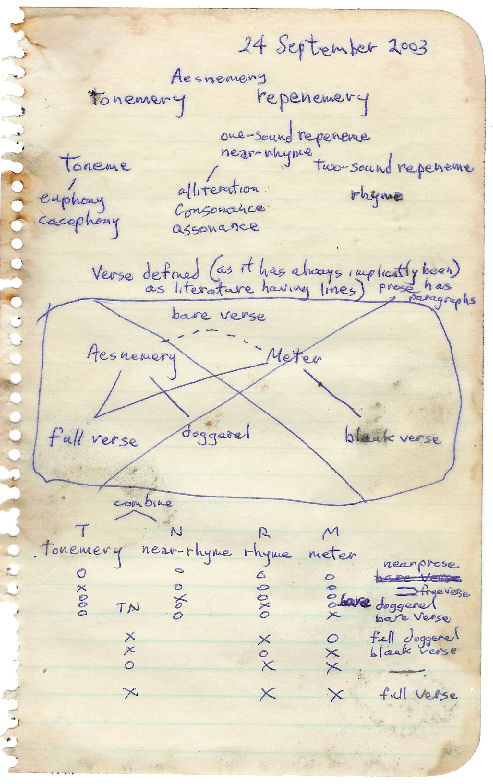 24 September 2003
Aesnemery
Tonemery repenemery
one-sound repeneme
near-rhyme
Toneme two-sound repeneme
euphony alliteration rhyme
cacophony consonance
assonance
Verse defined (as it has always implicitly been)
as literature having lines) prose has
paragraphs
bare verse
Aesnemery Meter
full verse doggerel blank verse
combine
T N R M
tonemery near-rhyme rhyme meter
nearprose
o o o o bare verse
x o o o freeverse
o x o o
o TN o x o bare doggerel
o o o x bare verse
x x o full doggerel
x o x blank verse
o x x —
x x x full verse